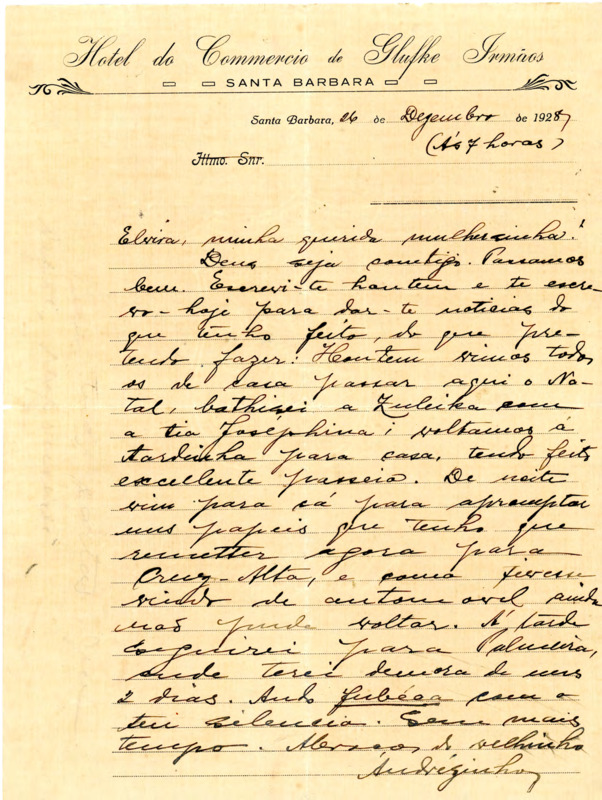 Hotel do Commercio de Glufke Irmãos
SANTA BARBARA
Santa Barbara, 26 de Dezembro de 1928
(Ás 7 horas)
Illmo. Snr.
Elvira, minha querida mulhersinha!
Deus seja comtigo. Passamos
bem. Escrevi-te hontem e te escre-
vo-hoje para dar-te noticias do
que tenho feito, do que pre-
tendo fazer: Hontem vimos todos
os de casa passar aqui o Na-
tal, bathisei a Zuleika com
a tia Joséphina; voltamos á
tardinha para casa, tendo feito
excellente passeio. De noite
vim para cá para apromptar
uns papeis que tenho que
remetter agora para
Cruz-Alta, e como tivesse
vindo de automovel ainda
não pude voltar. Á tarde
seguirei para Palmeira,
onde terei demora de uns
2 dias. Ando com o
teu silencio. Sem mais
tempo. Abraços do velhinho
Andrézinho